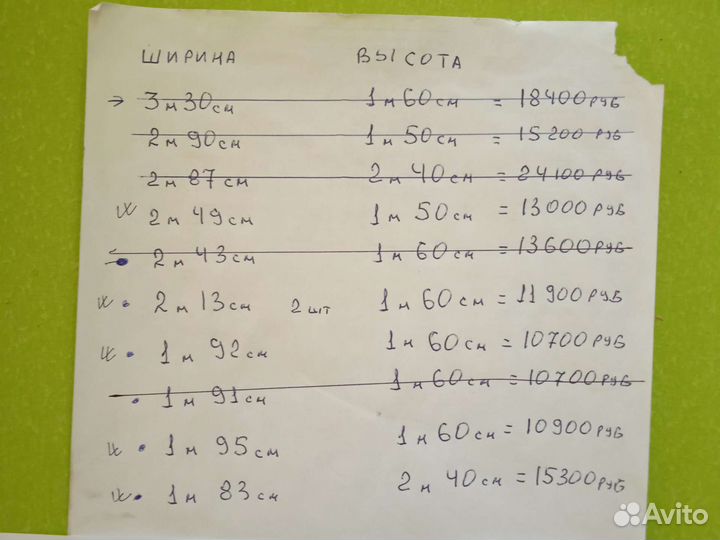 ШИРИНА ВЫСОТА
→ 3 м 30 см 1 м 60 см = 18400 РУБ
2 м 90 см 1 м 50 см = 15200 РУБ
2 м 87 см 2 м 40 см = 24100 РУБ
2 м 49 см 1 м 50 см = 13000 РУБ
• 2 м 43 см 1 м 60 см = 13600 РУБ
• 2 м 13 см 2 шт 1 м 60 см = 11900 РУБ
• 1 м 92 см 1 м 60 см = 10700 РУБ
• 1 м 91 см 1 м 60 см = 10700 РУБ
• 1 м 95 см 1 м 60 см = 10900 РУБ
• 1 м 83 см 2 м 40 см = 15300 РУБ
Avito